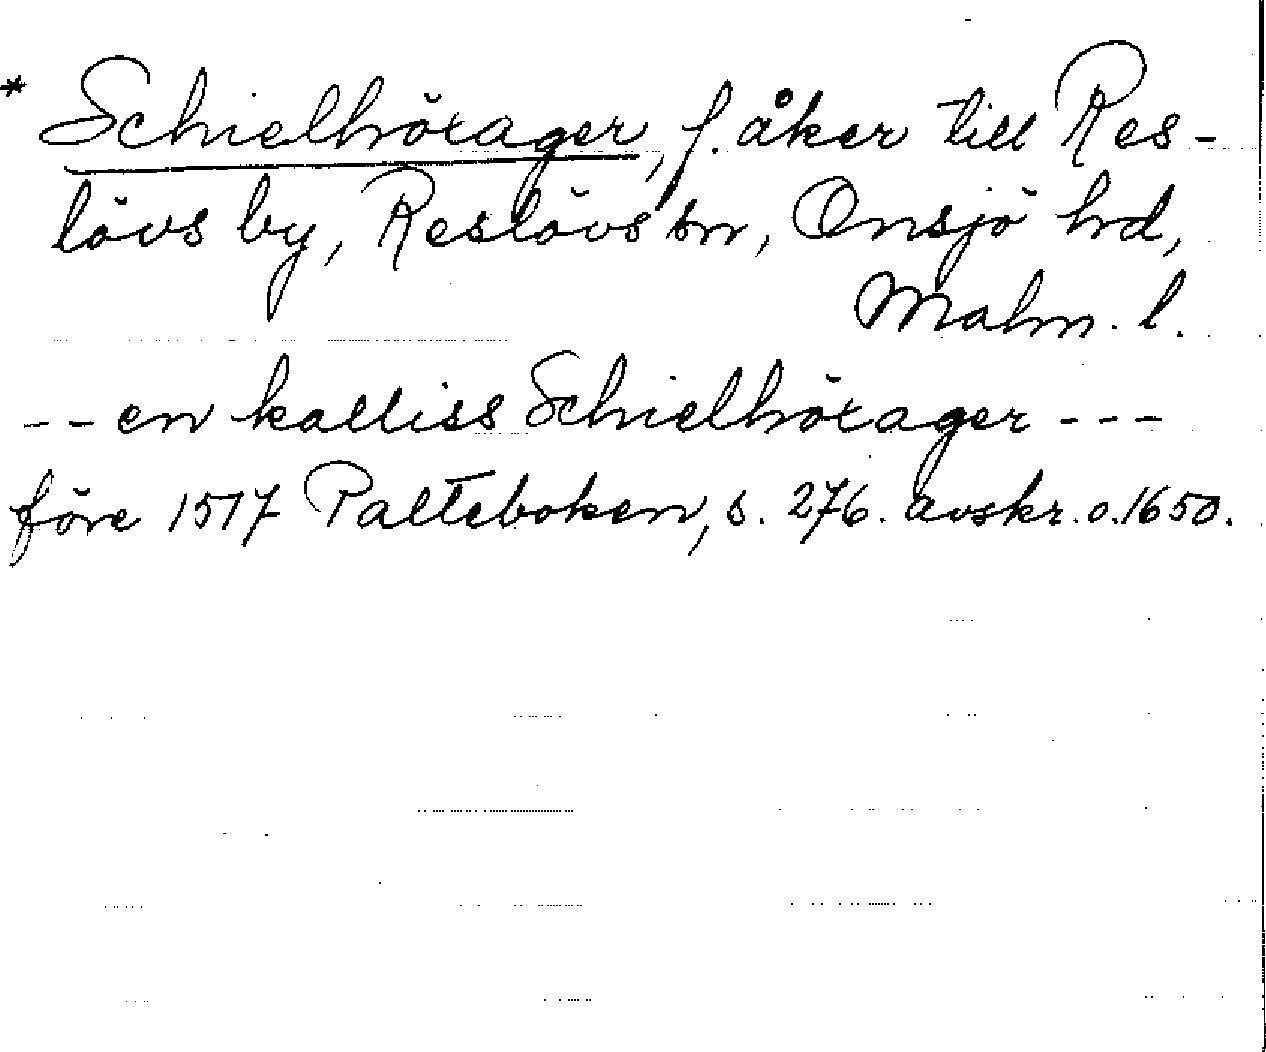 * Schielhöxager, f. åker till Res-
lövs by, Reslövs sn, Onsjö hd,
Malm. l.
-- en kalliss Schielhöxager ---
före 1517 Palteboken, s. 276. avskr. o. 1650.